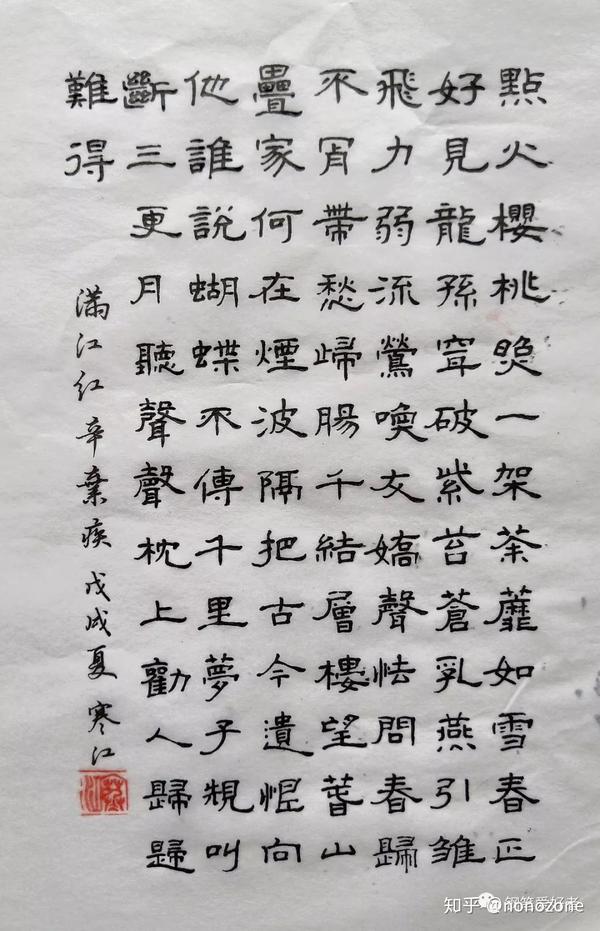 點火櫻桃照一架荼蘼如雪春正
好見龍孫穿破紫苔蒼乳燕引雛
飛力弱流鶯喚友嬌聲怯問春歸
不肯帶愁歸腸千結層樓望萅山
疊家何在煙波隔把古今遺恨向
他誰說蝴蝶不傳千里夢子規叫
斷三更月聽聲聲枕上勸人歸歸
難得
满江红 辛棄疾 戊戌夏 寒江
钢笔爱好者
知乎 @nonozone